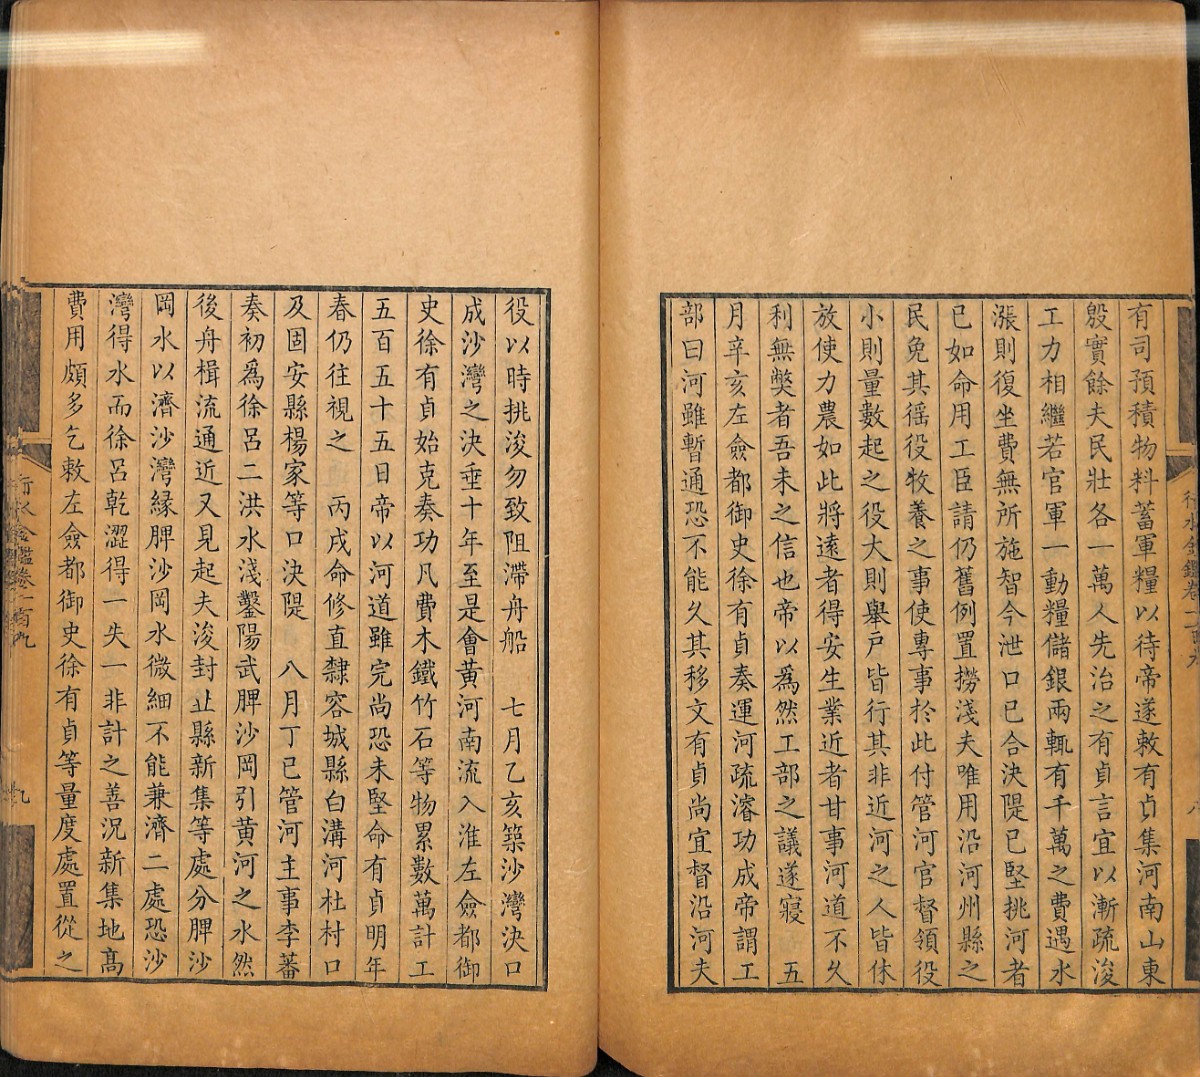 有司預積物料蓄軍糧以待帝遂敕有貞集河南山東
殷實餘夫民壯各一萬人先治之有貞言宜以漸疏浚
工力相繼若官軍一動糧儲銀兩輒有千萬之費遇水
漲則復坐費無所施智今泄口已合決隄已堅挑河者
已如命用工臣請仍舊例置撈淺夫唯用沿河州縣之
民免其徭役牧養之事使專事於此付管河官督領役
小則量數起之役大則舉戶皆行其非近河之人皆休
放使力農如此將遠者得安生業近者甘事河道不久
利無弊者吾未之信也帝以爲然工部之議遂寢 五
月辛亥左僉都御史徐有貞奏運河疏濬功成帝謂工
部曰河雖暫通恐不能久其移文有貞尚宜督沿河夫
役以時挑浚勿致阻滯舟船 七月乙亥築沙灣決口
成沙灣之決垂十年至是會黃河南流入淮左僉都御
史徐有貞始克奏功凡費木鐵竹石等物累數萬計工
五百五十五日帝以河道雖完尚恐未堅命有貞明年
春仍往視之 丙戌命修直隸容城縣白溝河杜村口
及固安縣楊家等口決隄 八月丁巳管河主事李蕃
奏初爲徐呂二洪水淺鑿陽武脾沙岡引黃河之水然
後舟楫流通近又見起夫浚封丘縣新集等處分脾沙
岡水以濟沙灣緣脾沙岡水微細不能兼濟二處恐沙
灣得水而徐呂乾澀得一失一非計之善況新集地高
費用頗多乞敕左僉都御史徐有貞等量度處置從之
行水金鑑卷一百九
九